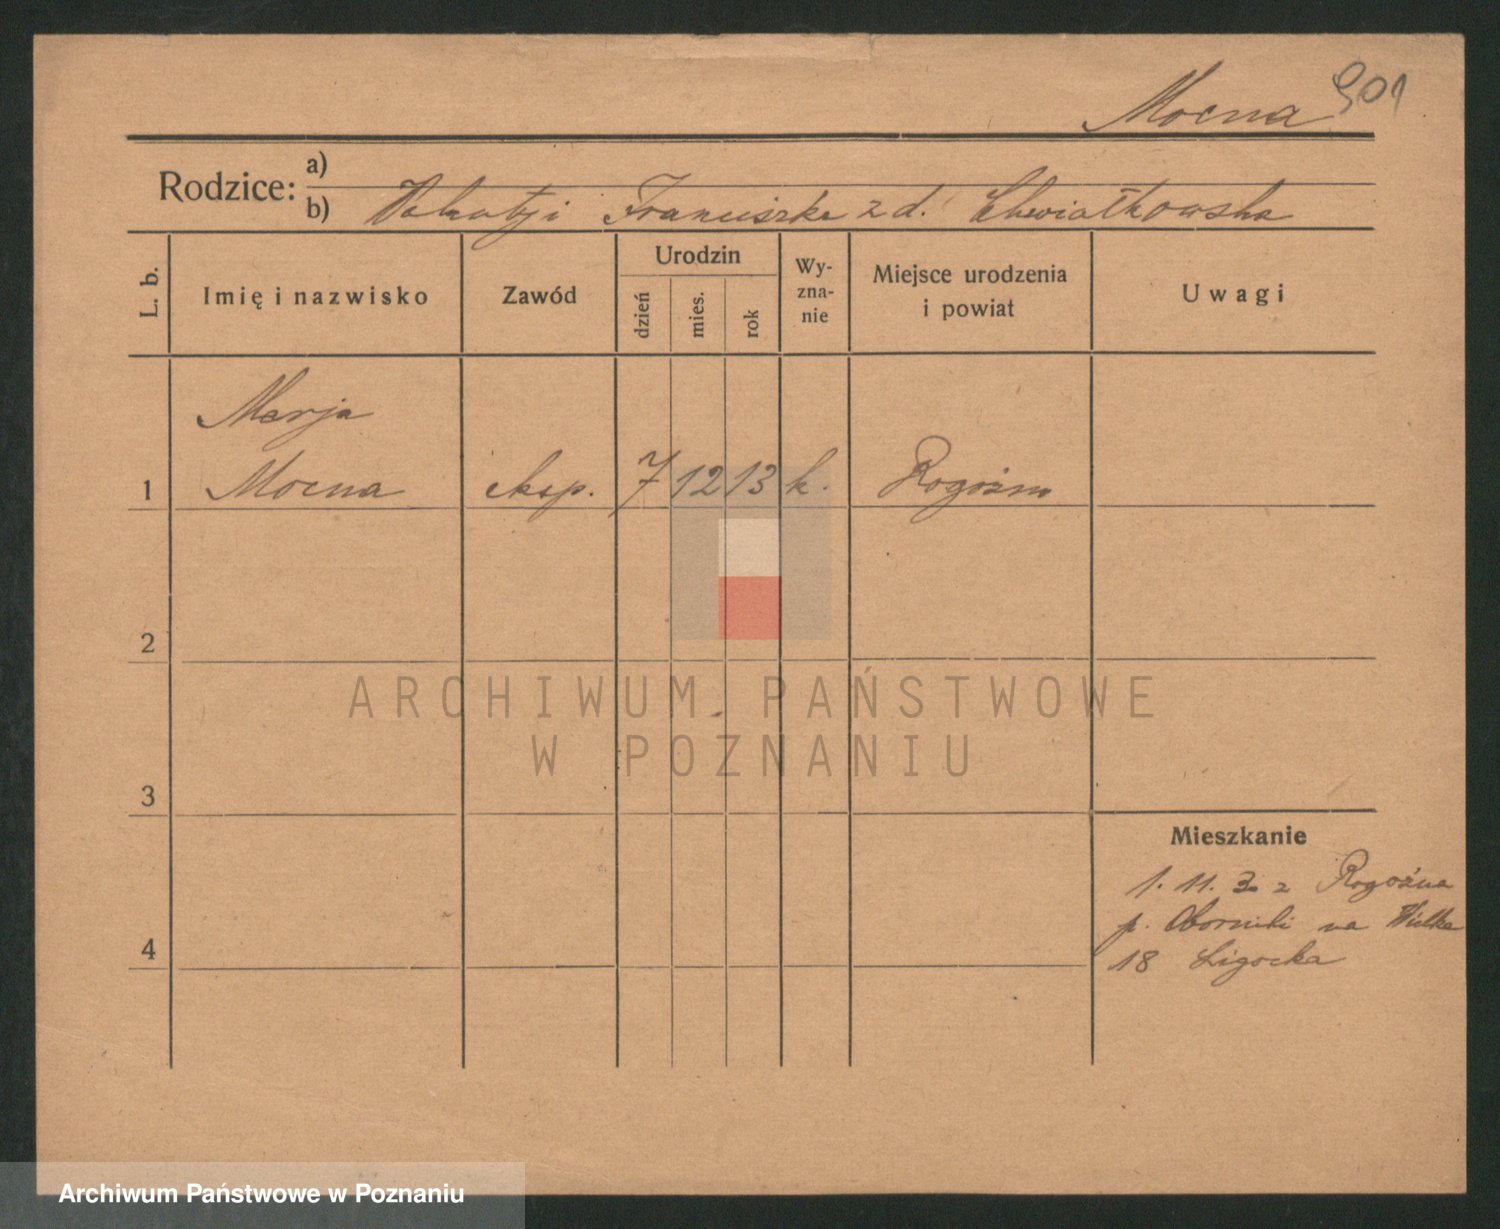 Mocna 901
Rodzice: a)
b) Franciszka z d. Chwiałkowska
L. b. Imię i nazwisko Zawód Urodzin dzień mies. rok Wy-zna-nie Miejsce urodzenia i powiat Uwagi
Marja
1 Mocna eksp. 7 12 13 k. Rogoźno
2
ARCHIWUM PAŃSTWOWE
W POZNANIU
3
Mieszkanie
1. 11. 3. z Rogoźna
p. Oborniki na Wielka
4 18 Ligocka
Archiwum Państwowe w Poznaniu